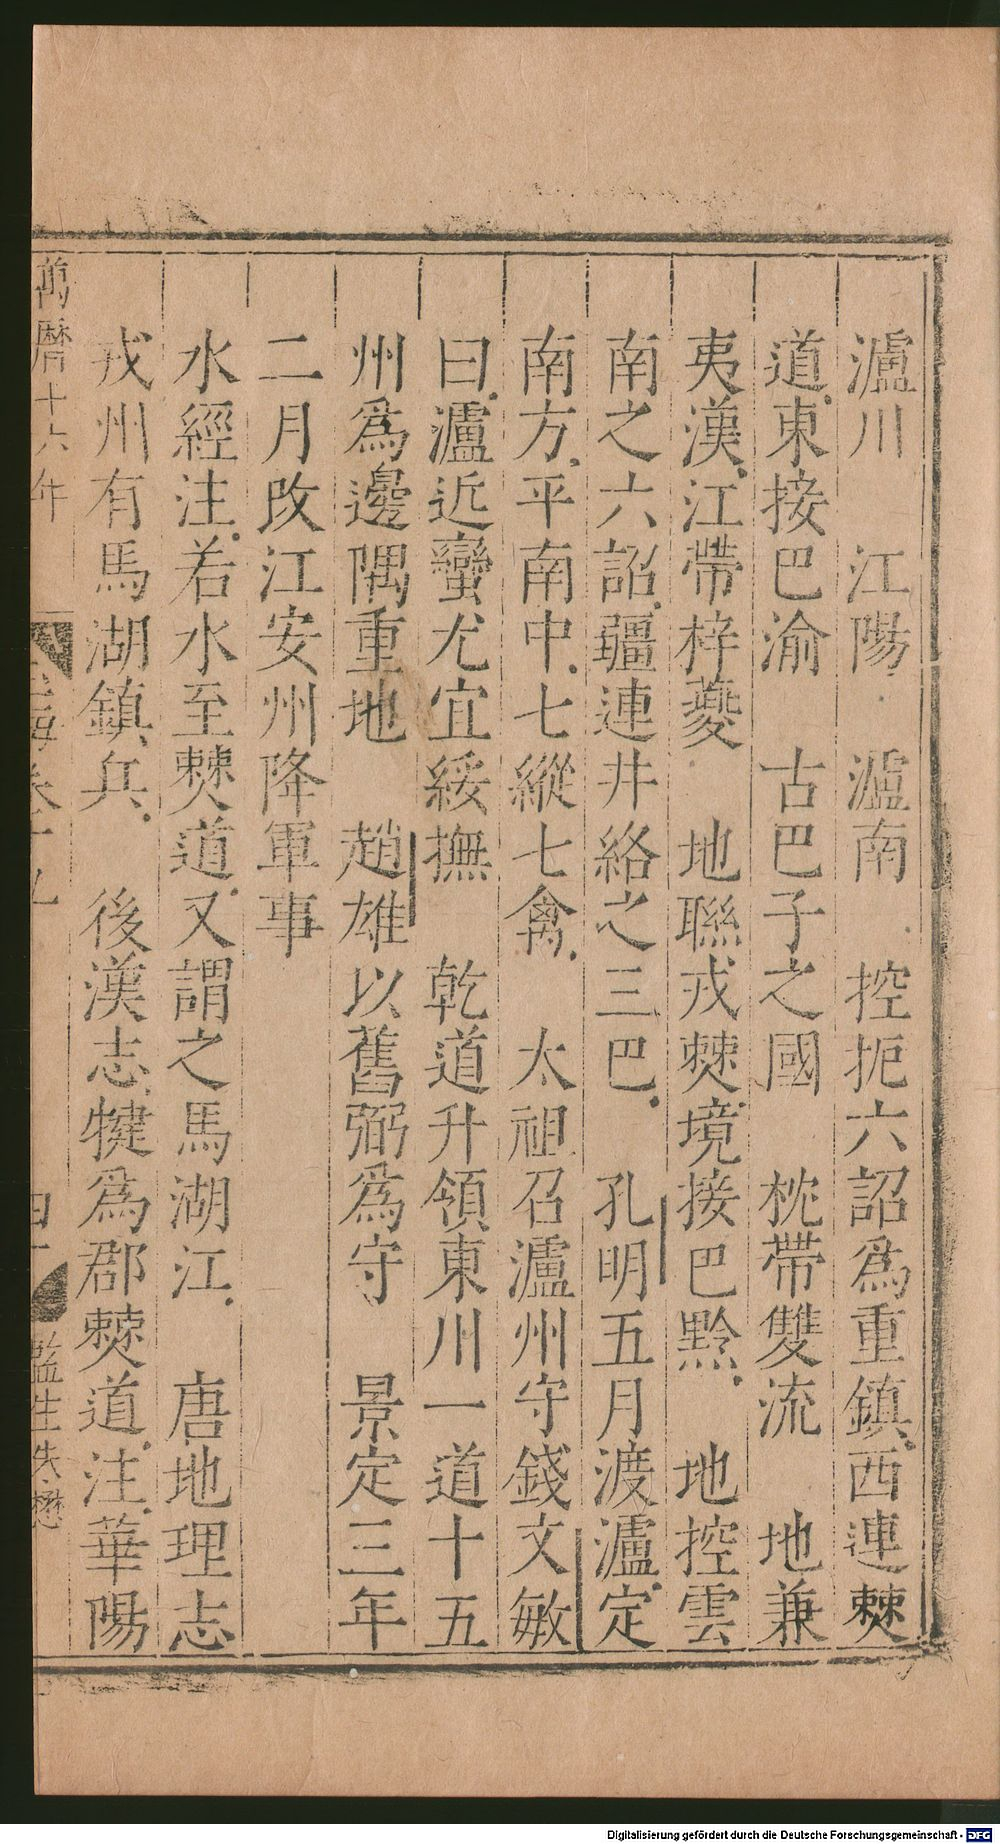 瀘川　江陽　瀘南　控扼六詔爲重鎮西連僰
道東接巴渝　古巴子之國　枕帶雙流　地兼
夷漢江帶梓夔　地聯戎僰境接巴黔　地控雲
南之六詔疆連井絡之三巴　孔明五月渡瀘定
南方平南中七縱七禽　太祖召瀘州守錢文敏
曰瀘近蠻尤宜綏撫　乾道升領東川一道十五
州爲邊隅重地　趙雄以舊弼爲守　景定三年
二月改江安州降軍事
水經注若水至僰道又謂之馬湖江　唐地理志
戎州有馬湖鎮兵　後漢志犍爲郡僰道注華陽
萬曆十六年
監生
Digitalisierung gefördert durch die Deutsche Forschungsgemeinschaft - DFG